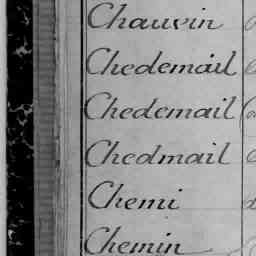 Chauvin
Chedemail
Chedemail
Chedmail
Chemi
Chemin